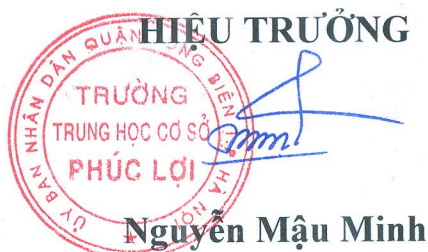 HIỆU TRƯỞNG
ỦY BAN NHÂN DÂN QUẬN LONG BIÊN
TRƯỜNG
TRUNG HỌC CƠ SỞ
PHÚC LỢI
HÀ NỘI
Nguyễn Mậu Minh